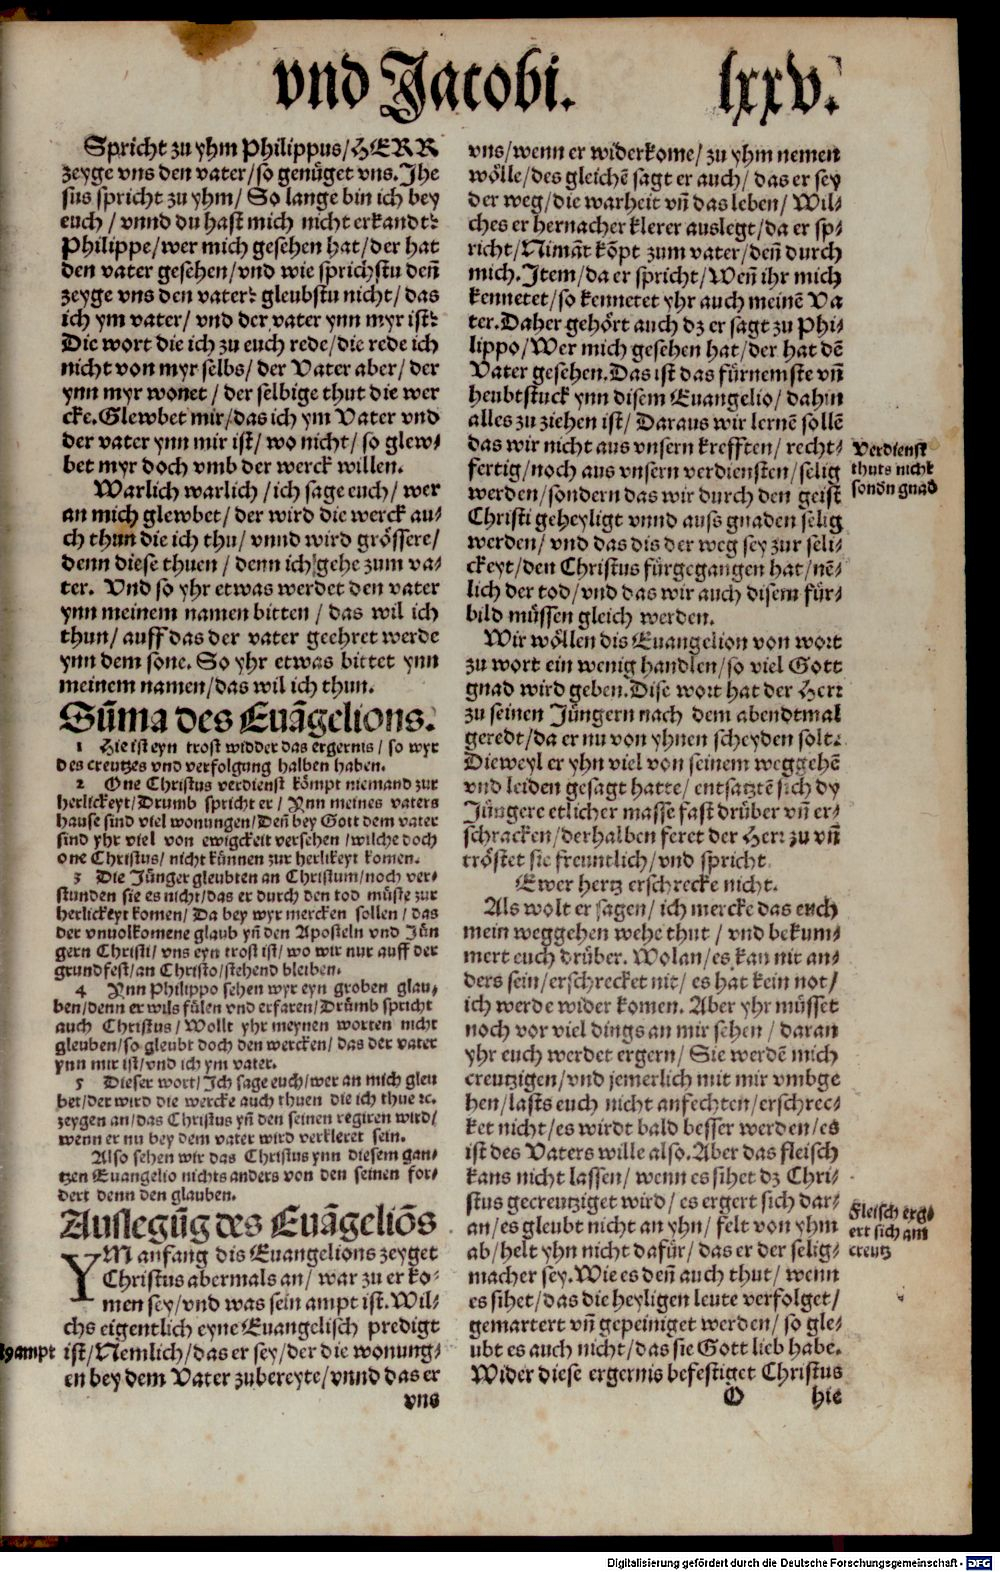 vnd Jacobi. lxxv.
Spricht zu yhm Philippus/HERR
zeyge vns den vater/so genüget vns. Jhe
sus spricht zu yhm/ So lange bin ich bey
euch / vnnd du hast mich nicht erkandt?
Philippe/wer mich gesehen hat/der hat
den vater gesehen/vnd wie sprichstu deñ
zeyge vns den vater? gleubstu nicht/ das
ich ym vater/ vnd der vater ynn myr ist?
Die wort die ich zu euch rede/die rede ich
nicht von myr selbs/ der Vater aber/ der
ynn myr wonet / der selbige thut die wer
cke. Glewbet mir/das ich ym Vater vnd
der vater ynn mir ist/ wo nicht/ so glew⸗
bet myr doch vmb der werck willen.
Warlich warlich /ich sage euch/ wer
an mich glewbet/ der wird die werck au⸗
ch thun die ich thu/ vnnd wird grössere/
denn diese thuen / denn ich gehe zum va⸗
ter. Vnd so yhr etwas werdet den vater
ynn meinem namen bitten / das wil ich
thun/ auff das der vater geehret werde
ynn dem sone. So yhr etwas bittet ynn
meinem namen/das wil ich thun.
Sum̃a des Euãgelions.
1 Hie ist eyn trost widder das ergernis/ so wyr
des creutzes vnd verfolgung halben haben.
2 One Christus verdienst kömpt niemand zur
herlickeyt/Drumb spricht er/ Ynn meines vaters
hause sind viel wonungen/Deñ bey Gott dem vater
sind yhr viel von ewigckeit versehen/wilche doch
one Christus/ nicht künnen zur herlikeyt komen.
3 Die Jünger gleubten an Christum/noch ver⸗
stunden sie es nicht/das er durch den tod müste zur
herlickeyt komen/ Da bey wyr mercken sollen/ das
der vnuolkomene glaub yñ den Aposteln vnd Jün
gern Christi/ vns eyn trost ist/ wo wir nur auff der
grundfest/an Christo/stehend bleiben.
4 Ynn Philippo sehen wyr eyn groben glau⸗
ben/denn er wils fülen vnd erfaren/Drümb spricht
auch Christus/ Wollt yhr meynen worten nicht
gleuben/so gleubt doch den wercken/ das der vater
ynn mir ist/vnd ich ym vater.
5 Dieser wort/ Ich sage euch/wer an mich gleu
bet/der wird die wercke auch thuen die ich thue ꝛc.
zeygen an/das Christus yñ den seinen regiren wird/
wenn er nu bey dem vater wird verkleret sein.
Also sehen wir das Christus ynn diesem gan⸗
tzen Euangelio nichts anders von den seinen for⸗
dert denn den glauben.
Auslegũg des Euãgeliõs
YM anfang dis Euangelions zeyget
Christus abermals an/ war zu er ko⸗
men sey/vnd was sein ampt ist. Wil⸗
chs eigentlich eyne Euangelisch predigt
ist/Nemlich/das er sey/der die wonung⸗
en bey dem Vater zubereyte/vnnd das er
vns
ampt
vns/wenn er widerkome/ zu yhm nemen
wölle/des gleichẽ sagt er auch/ das er sey
der weg/die warheit vñ das leben/ Wil⸗
ches er hernacher klerer auslegt/da er sp⸗
richt/Nimãt kõpt zum vater/deñ durch
mich. Item/da er spricht/Weñ ihr mich
kennetet/so kennetet yhr auch meinẽ Va
ter. Daher gehört auch dz er sagt zu Phi⸗
lippo/Wer mich gesehen hat/der hat dẽ
Vater gesehen. Das ist das fürnemste vñ
heubtstuck ynn disem Euangelio/ dahin
alles zu ziehen ist/ Daraus wir lernẽ sollẽ
das wir nicht aus vnsern krefften/ recht⸗
fertig/noch aus vnsern verdiensten/selig
werden/sondern das wir durch den geist
Christi geheyligt vnnd auss gnaden selig
werden/ vnd das dis der weg sey zur seli⸗
ckeyt/den Christus fürgegangen hat/nẽ⸗
lich der tod/vnd das wir auch disem für⸗
bild müssen gleich werden.
Wir wöllen dis Euangelion von wort
zu wort ein wenig handlen/so viel Gott
gnad wird geben. Dise wort hat der Herr
zu seinen Jüngern nach dem abendtmal
geredt/da er nu von yhnen scheyden solt.
Dieweyl er yhn viel von seinem weggehẽ
vnd leiden gesagt hatte/ entsatztẽ sich dy
Jüngere etlicher masse fast drüber vñ er⸗
schracken/derhalben feret der Herr zu vñ
tröstet sie freuntlich/vnd spricht
Ewer hertz erschrecke nicht.
Als wolt er sagen/ ich mercke das euch
mein weggehen wehe thut / vnd bekum⸗
mert euch drüber. Wolan/es kan nit an⸗
ders sein/erschrecket nit/ es hat kein not/
ich werde wider komen. Aber yhr müsset
noch vor viel dings an mir sehen/ daran
yhr euch werdet ergern/ Sie werdẽ mich
creutzigen/vnd jemerlich mit mir vmbge
hen/lasts euch nicht anfechten/erschrec⸗
ket nicht/es wirdt bald besser werden/es
ist des Vaters wille also. Aber das fleisch
kans nicht lassen/ wenn es sihet dz Chri⸗
stus gecreutziget wird/ es ergert sich dar⸗
an/es gleubt nicht an yhn/ felt von yhm
ab/helt yhn nicht dafür/ das er der selig⸗
macher sey. Wie es deñ auch thut/ wenn
es sihet/das die heyligen leute verfolget/
gemartert vñ gepeiniget werden/ so gle⸗
ubt es auch nicht/das sie Gott lieb habe.
Wider diese ergernis befestiget Christus
O hie
Verdienst
thuts nicht
sondn gnad
Fleisch erg⸗
ert sich am
creutz
Digitalisierung gefördert durch die Deutsche Forschungsgemeinschaft - DFG